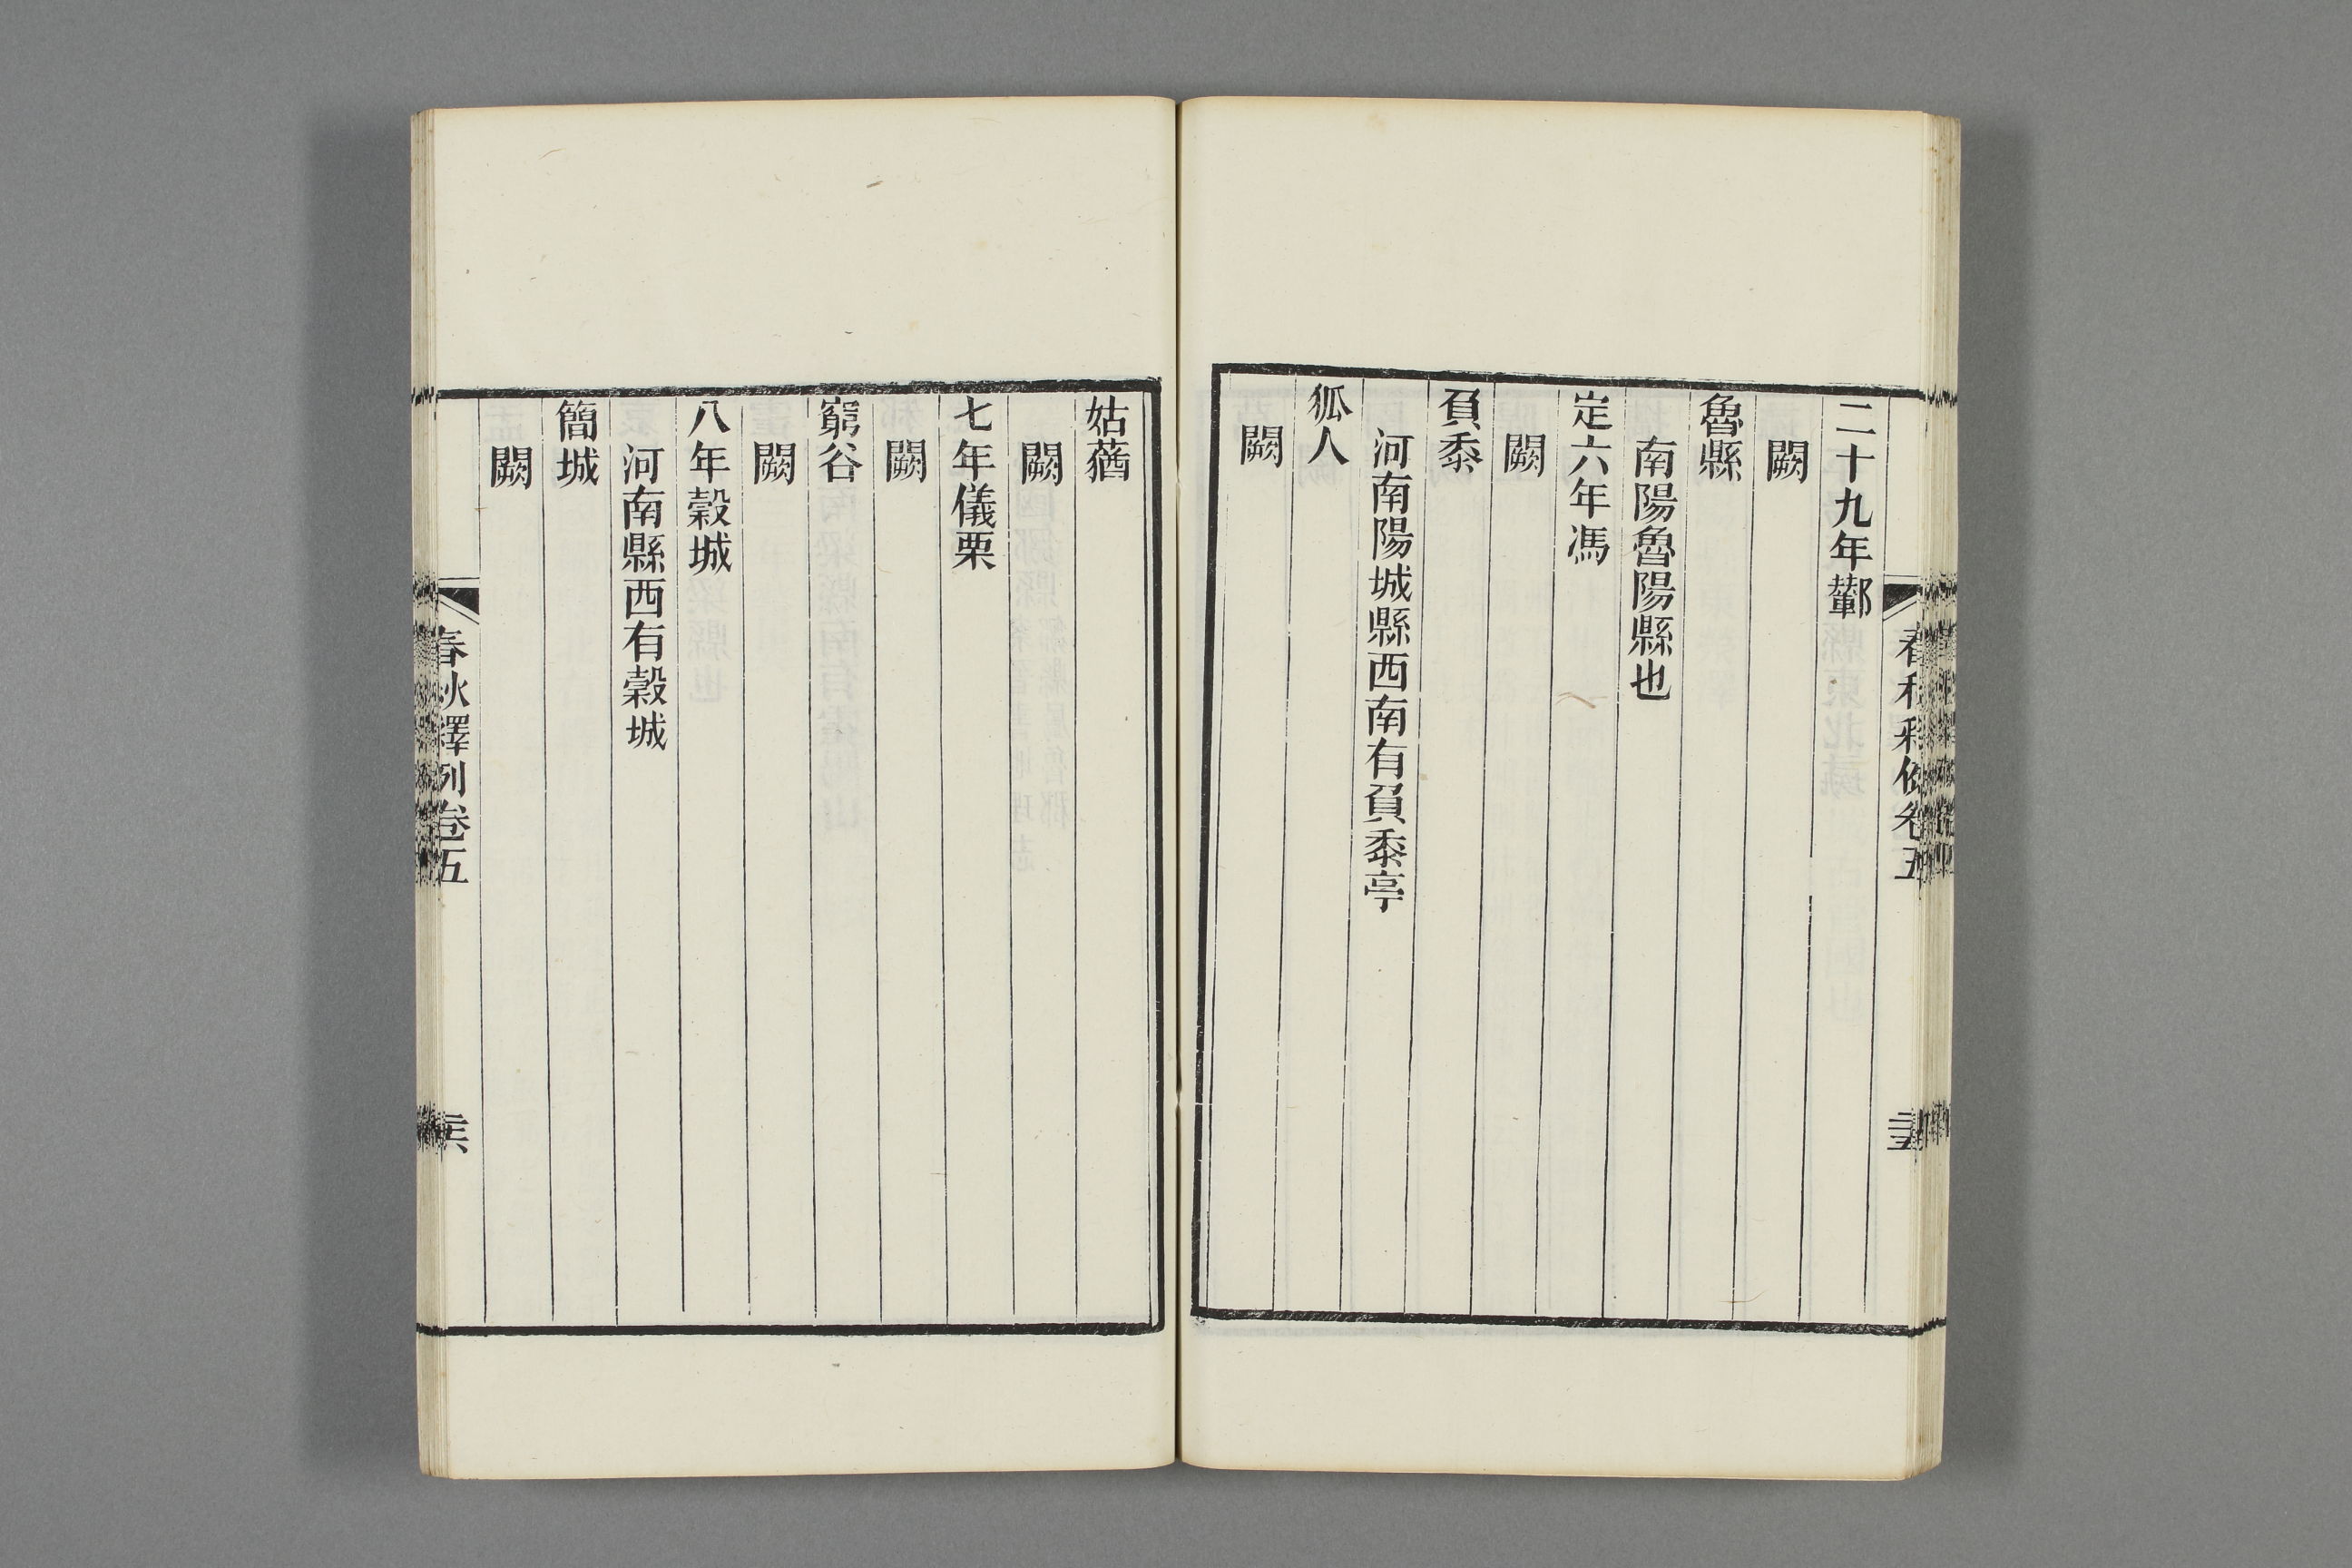 春秋釋例卷五
二十九年鄻
闕
魯縣
南陽魯陽縣也
定六年馮
闕
負黍
河南陽城縣西南有負黍亭
狐人
闕
姑蕕
闕
七年儀栗
闕
窮谷
闕
八年穀城
河南縣西有穀城
簡城
闕
春秋釋例卷五